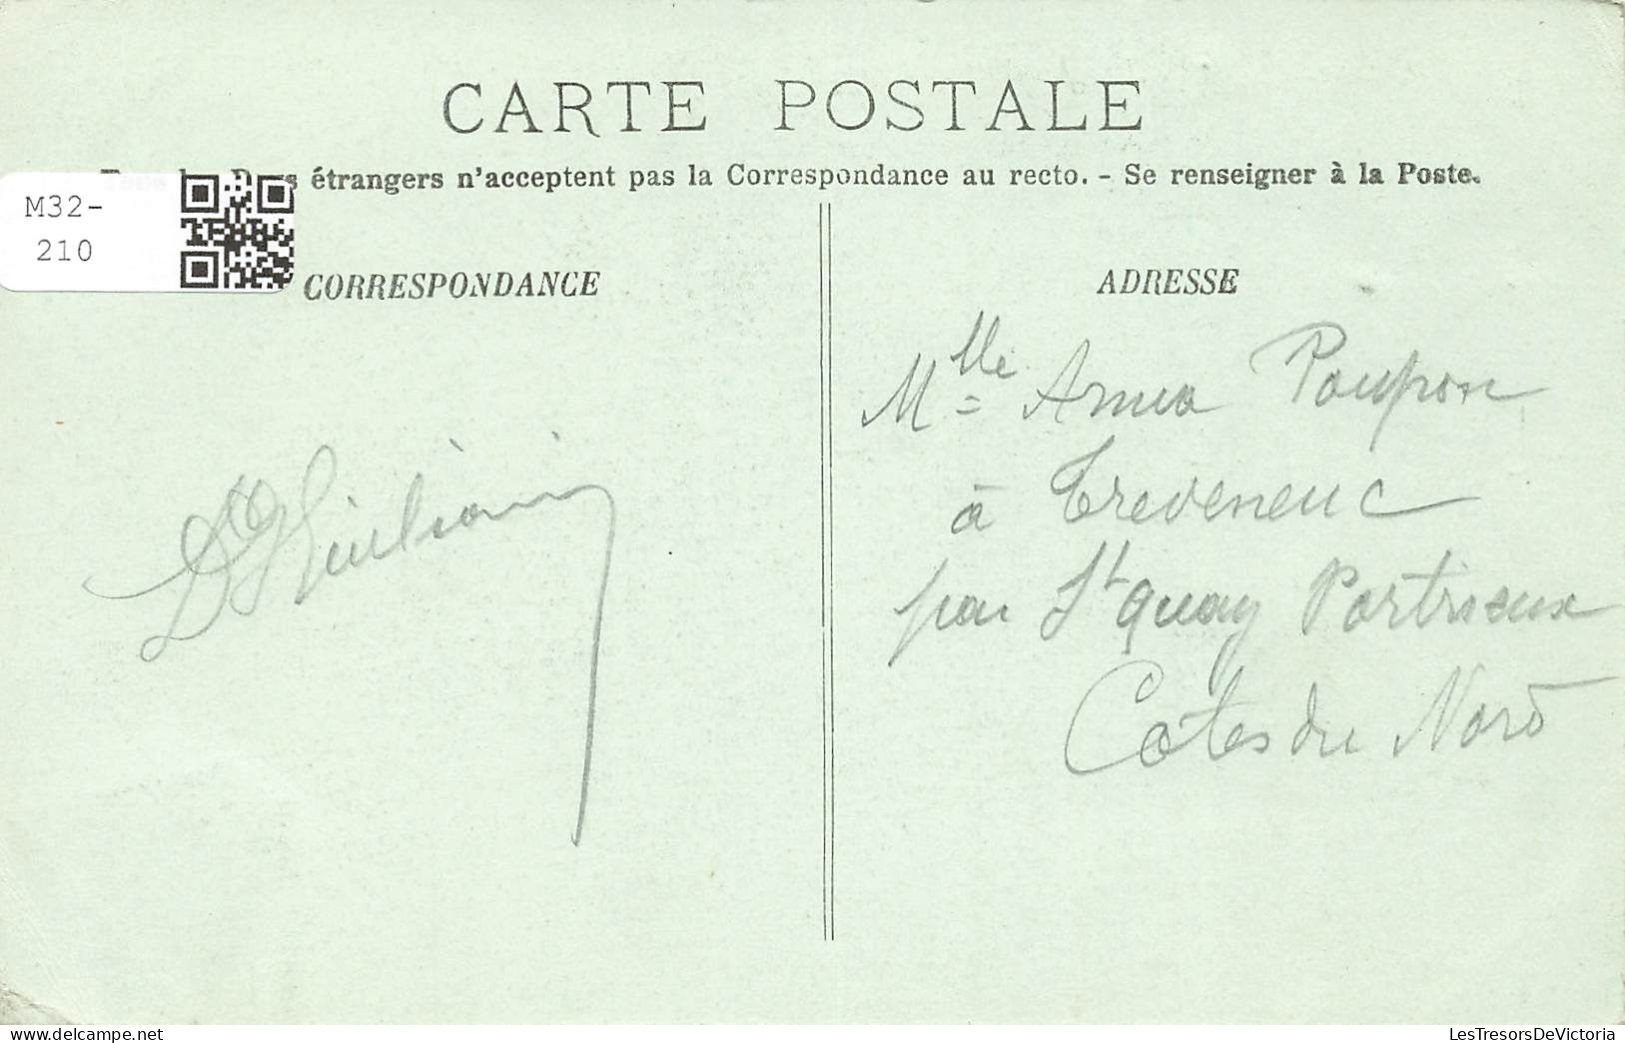 CARTE POSTALE
étrangers n'acceptent pas la Correspondance au recto. - Se renseigner à la Poste.
M32-
210
CORRESPONDANCE
ADRESSE
Mlle Anna Poupon
à Treveneuc
par St Quay Portrieux
Côtes du Nord
delcampe.net
LesTresorsDeVictoria